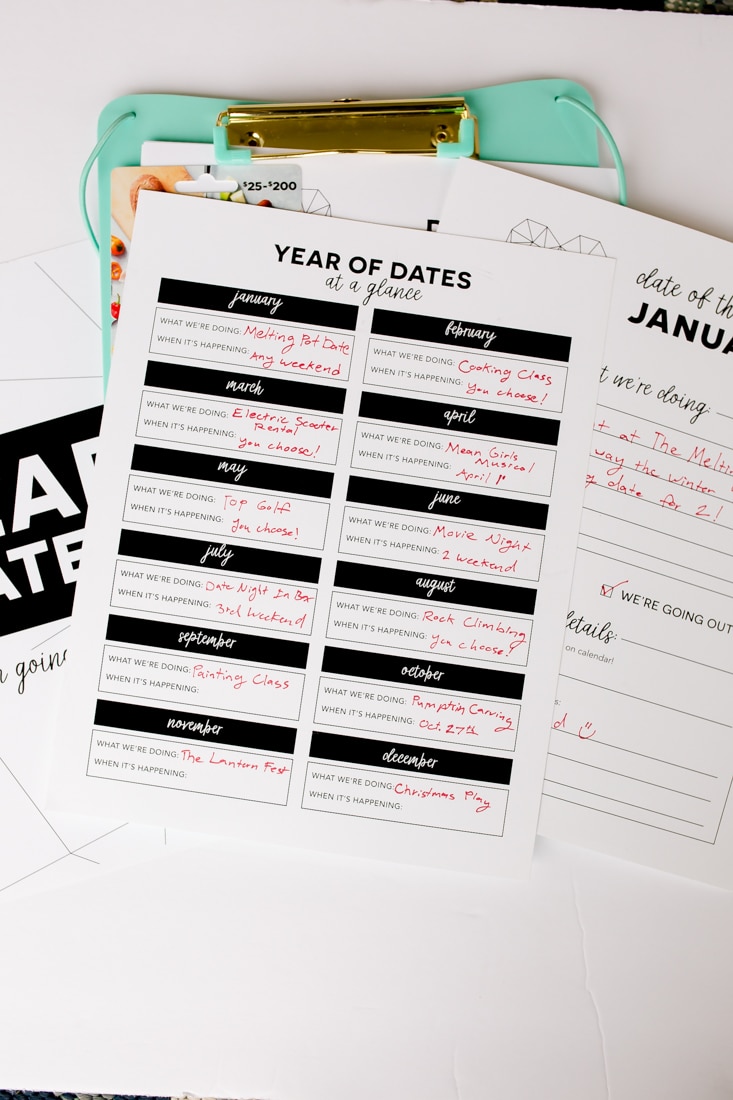 $25-$200
YEAR OF DATES
at a glance
january
WHAT WE'RE DOING: Melting Pot Date
WHEN IT'S HAPPENING: Any weekend
february
WHAT WE'RE DOING: Cooking Class
WHEN IT'S HAPPENING: You choose!
march
WHAT WE'RE DOING: Electric Scooter
Rental
WHEN IT'S HAPPENING: you choose!
april
WHAT WE'RE DOING: Mean Girls
Musical
WHEN IT'S HAPPENING: April
may
WHAT WE'RE DOING: Top Golf
WHEN IT'S HAPPENING: You choose!
june
WHAT WE'RE DOING: Movie Night
WHEN IT'S HAPPENING: 2 weekend
july
WHAT WE'RE DOING: Date Night In Box
WHEN IT'S HAPPENING: 3rd Weekend
august
WHAT WE'RE DOING: Rock Climbing
WHEN IT'S HAPPENING: You choose!
september
WHAT WE'RE DOING: Painting Class
WHEN IT'S HAPPENING:
october
WHAT WE'RE DOING: Pumpkin Carving
WHEN IT'S HAPPENING: Oct. 27th
november
WHAT WE'RE DOING: The Lantern Fest
WHEN IT'S HAPPENING:
december
WHAT WE'RE DOING: Christmas Play
WHEN IT'S HAPPENING:
date of th
JANUA
t we're doing:
t at The Melti
way the winter
date for 2!
WE'RE GOING OUT
etails:
on calendar!
d
EA
ATE
going